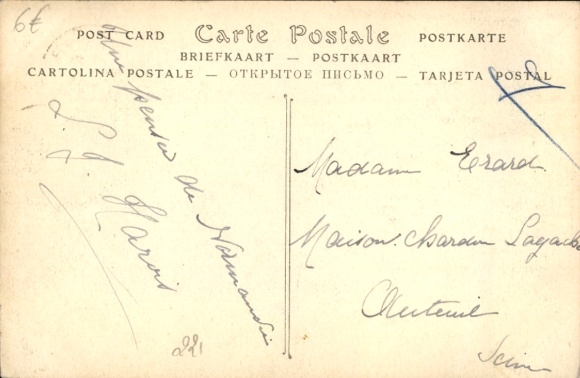 6€
POST CARD Carte Postale POSTKARTE
BRIEFKAART — POSTKAART
CARTOLINA POSTALE — ОТКРЫТОЕ ПИСЬМО — TARJETA POSTAL
Une pensée de Normandie
Madame Erard
Maison Chardon Lagache
Auteuil
Seine
221